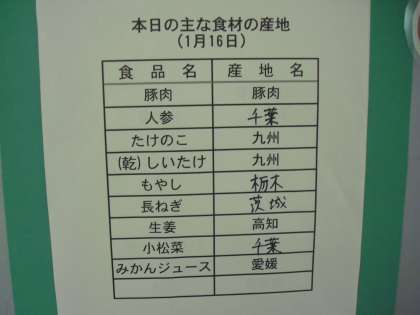 本日の主な食材の産地
(1月16日)
食品名 産地名
豚肉 豚肉
人参 千葉
たけのこ 九州
(乾)しいたけ 九州
もやし 栃木
長ねぎ 茨城
生姜 高知
小松菜 千葉
みかんジュース 愛媛